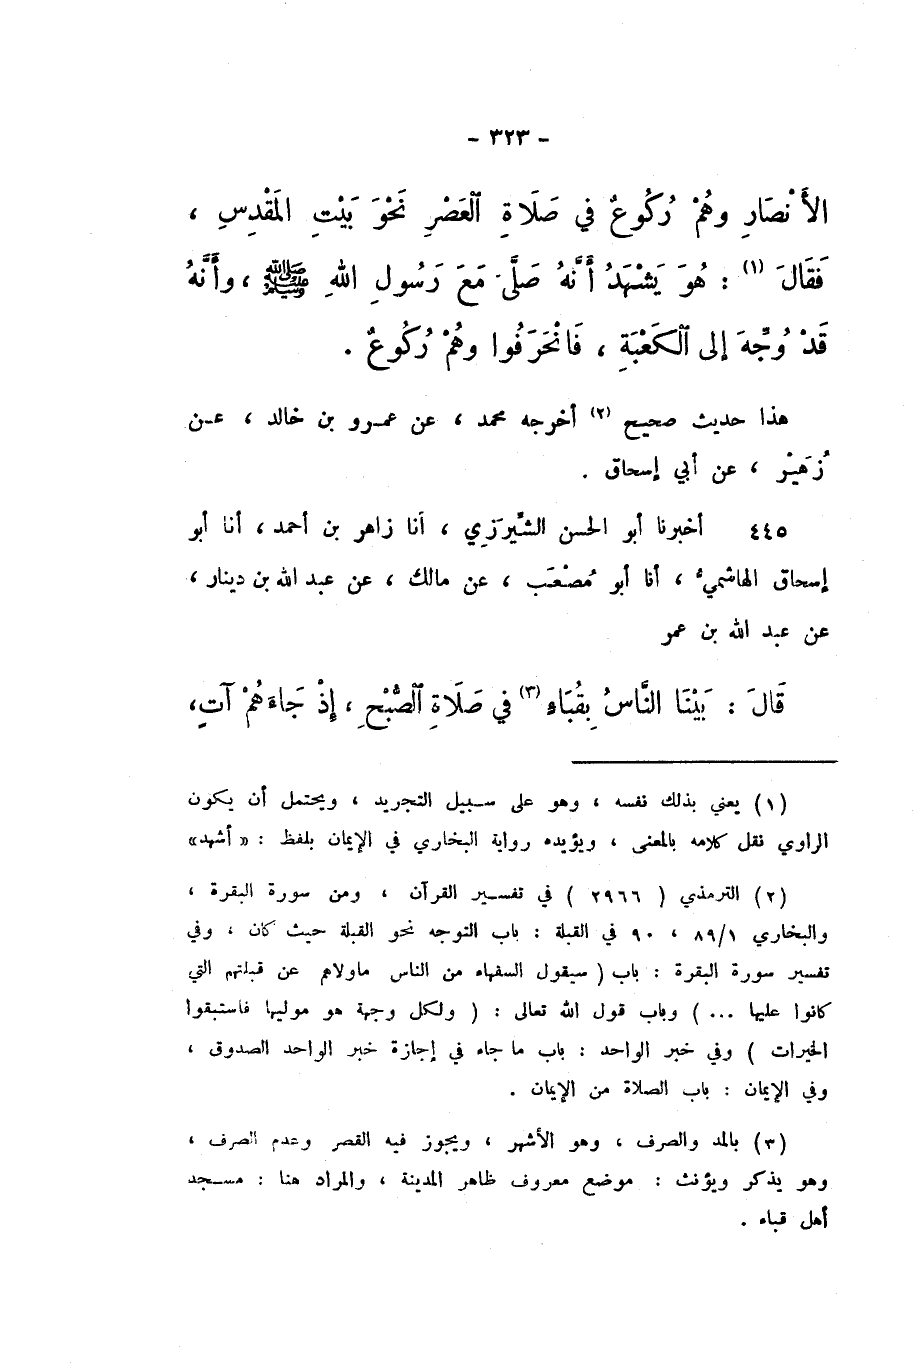 - ٣٢٣ -
الأَنْصَارِ وهُمْ رُكُوعٌ في صَلَاةِ ٱلعَصْرِ نَحْوَ بَيْتِ المَقْدِسِ ،
فَقَالَ (١) : هُوَ يَشْهَدُ أَنَّهُ صَلَّى مَعَ رَسُولِ اللهِ ﷺ ، وأَنَّهُ
قَدْ وُجِّهَ إلى ٱلكَعْبَةِ ، فَانْحَرَفُوا وهُمْ رُكُوعٌ .
هذا حديث صحيح (٢) أخرجه محمد ، عن عمرو بن خالد ، عن
زُهَيْر ، عن أبي إسحاق .
٤٤٥ أخبرنا أبو الحسن الشِّيرَزي ، أنا زاهر بن أحمد ، أنا أبو
إسحاق الهاشميُّ ، أنا أبو مُصْعَب ، عن مالك ، عن عبد الله بن دينار ،
عن عبد الله بن عمر
قَالَ : بَيْنَا النَّاسُ بِقُبَاءِ (٣) في صَلَاةِ ٱلصُّبْحِ ، إِذْ جَاءَهُمْ آتٍ،
(١) يعني بذلك نفسه ، وهو على سبيل التجريد ، ويحتمل أن يكون
الراوي نقل كلامه بالمعنى ، ويؤيده رواية البخاري في الإيمان بلفظ : « أشهد»
(٢) الترمذي ( ٢٩٦٦ ) في تفسير القرآن ، ومن سورة البقرة ،
والبخاري ٨٩/١ ، ٩٠ في القبلة : باب التوجه نحو القبلة حيث كان ، وفي
تفسير سورة البقرة : باب ( سيقول السفهاء من الناس ماولاهم عن قبلتهم التي
كانوا عليها ... ) وباب قول الله تعالى : ( ولكل وجهة هو موليها فاستبقوا
الخيرات ) وفي خبر الواحد : باب ما جاء في إجازة خبر الواحد الصدوق ،
وفي الإيمان : باب الصلاة من الإيمان .
(٣) بالمد والصرف ، وهو الأشهر ، ويجوز فيه القصر وعدم الصرف ،
وهو يذكر ويؤنث : موضع معروف ظاهر المدينة ، والمراد هنا : مسجد
أهل قباء .